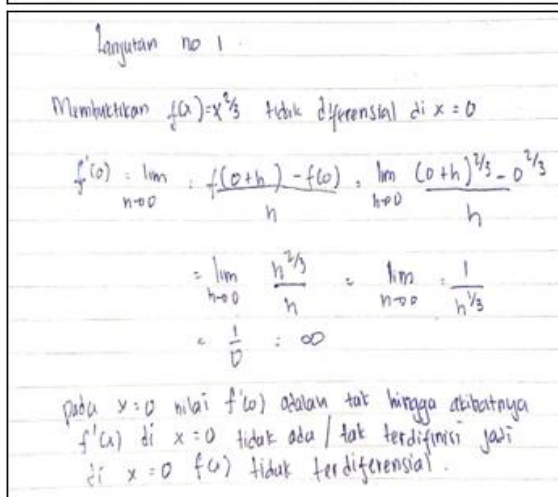 Lanjutan no 1.
Membuktikan f(x)=x^2/3 tidak diferensial di x = 0
f'(0) = lim n→0 = f(0+h) - f(0) / h = lim h→0 (0+h)^2/3 - 0^2/3 / h
= lim h→0 h^2/3 / h = lim n→0 = 1 / h^1/3
= 1/0 = ∞
pada x=0 nilai f'(0) adalah tak hingga akibatnya
f'(x) di x = 0 tidak ada / tak terdifinisi jadi
di x = 0 f(x) tidak terdiferensial.